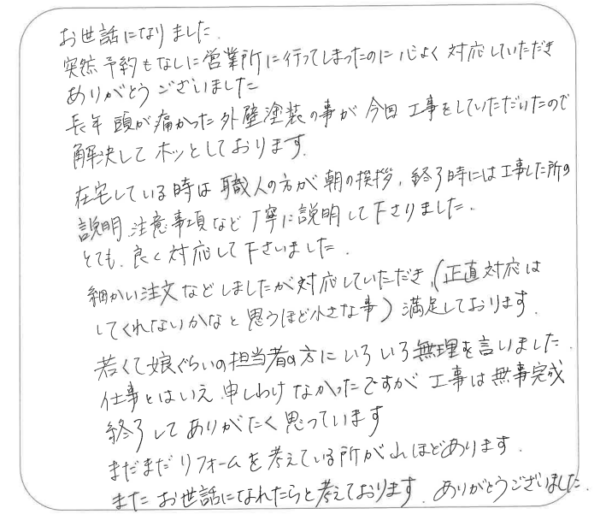 お世話になりました.
突然予約もなしに営業所に行ってしまったのに心よく対応していただき
ありがとうございました
長年頭が痛かった外壁塗装の事が今回工事をしていただいたので
解決してホッとしております.
在宅している時は職人の方が朝の挨拶,終了時には工事した所の
説明,注意事項など丁寧に説明して下さりました.
とても,良く対応して下さいました.
細かい注文などしましたが対応していただき,(正直対応は
してくれないかなと思うほど小さな事)満足しております.
若くて娘ぐらいの担当者の方にいろいろ無理を言いました.
仕事とはいえ,申しわけなかったですが工事は無事完成
終了してありがたく思っています
まだまだリフォームを考えている所が山ほどあります.
またお世話になれたらと考えております.ありがとうございました.